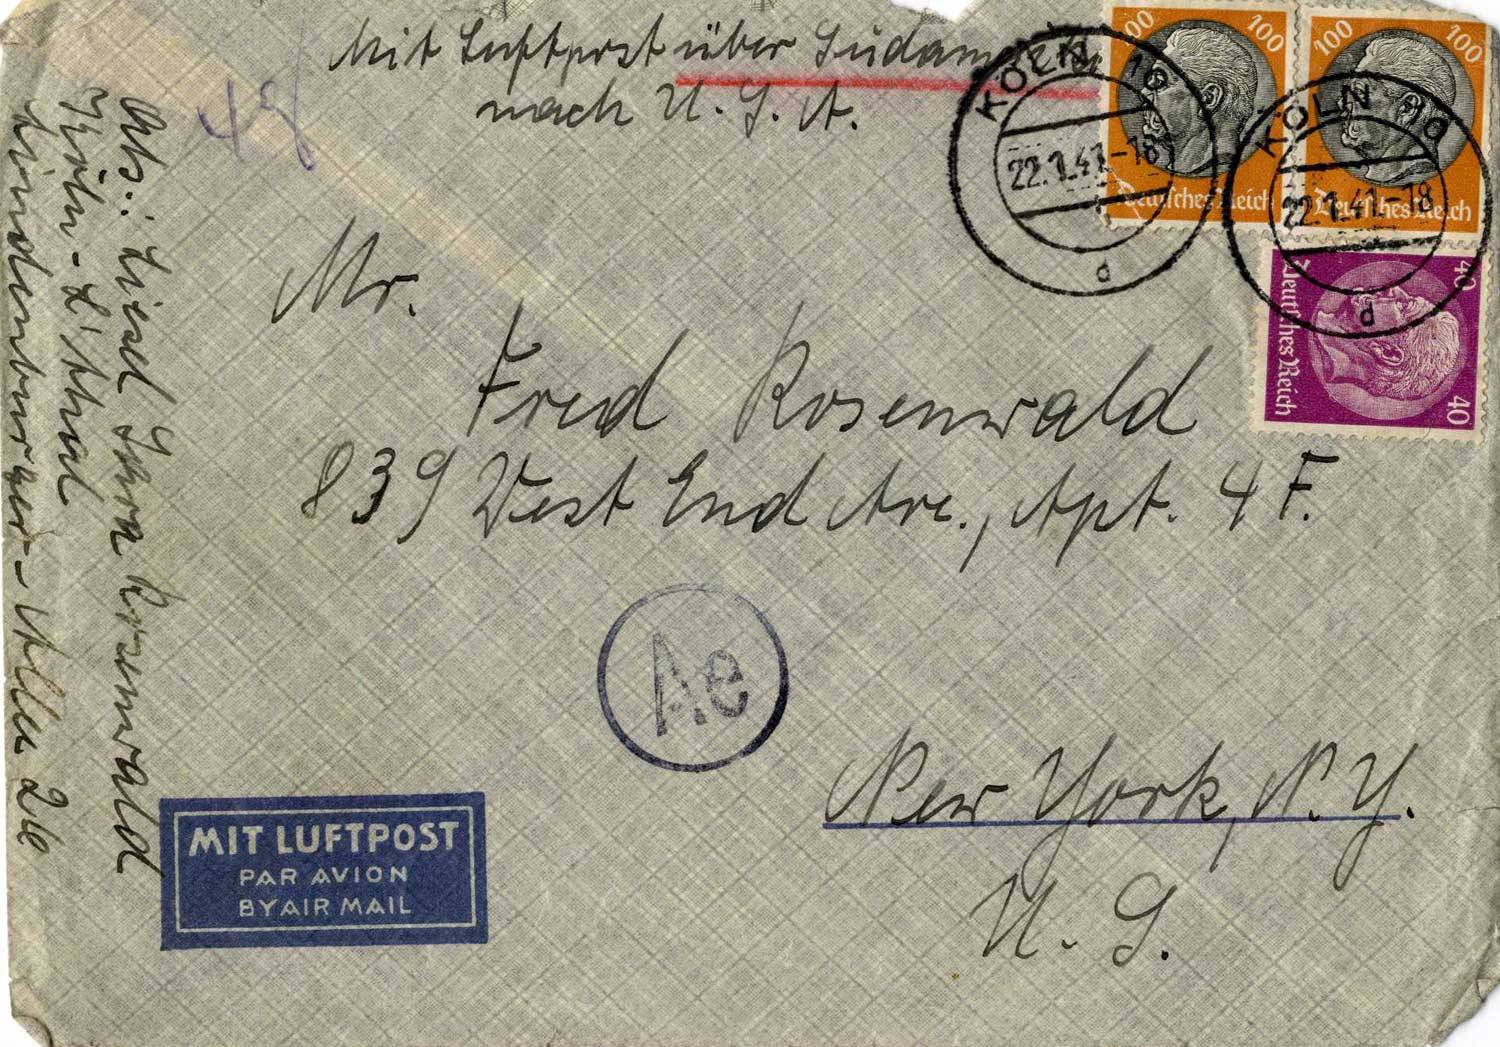 Mit Luftpost über Südamerika
nach U.S.A.
48
Mr.
Fred Rosenwald
839 West End Ave., Apt. 4 F.
New York, N.Y.
U. S.
Abs.: Liesel Sara Rosenwald
Köln-L'thal
Lindenburger-Allee 26
KÖLN 10
22.1.41-18
d
KÖLN 10
22.1.41-18
d
100 100
Deutsches Reich
100 100
Deutsches Reich
40 40
Deutsches Reich
Ae
MIT LUFTPOST
PAR AVION
BY AIR MAIL